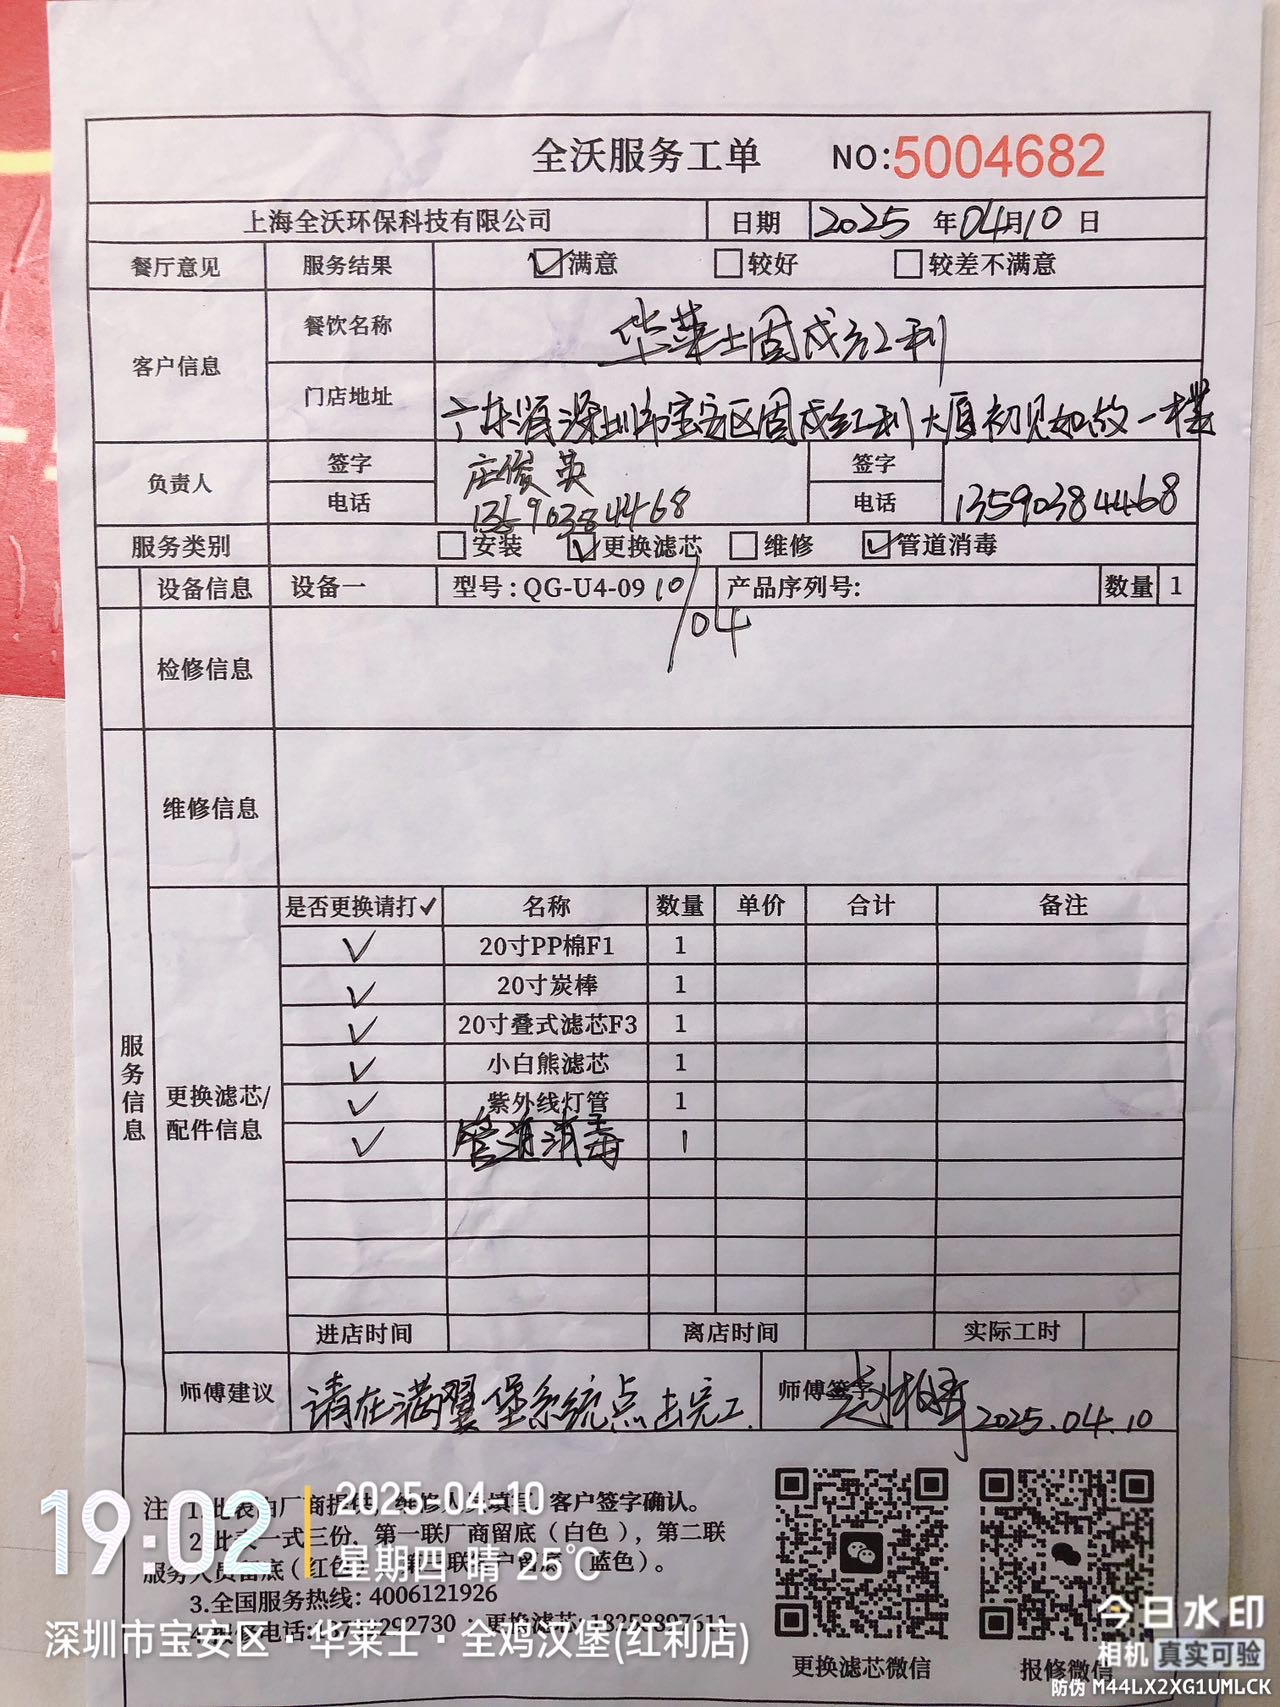 全沃服务工单 NO:5004682
上海全沃环保科技有限公司 日期 2025 年 04月10 日
餐厅意见 服务结果 满意 较好 较差不满意
客户信息 餐饮名称 华莱士固戍红利
门店地址 广东省深圳市宝安区固戍红利大厦初见如故一楼
负责人 签字 庄俊英 签字
电话 13590384468 电话 13590384468
服务类别 安装 更换滤芯 维修 管道消毒
设备信息 设备一 型号:QG-U4-09 10/04 产品序列号: 数量 1
检修信息
维修信息
服务信息
更换滤芯/
配件信息
是否更换请打✓ 名称 数量 单价 合计 备注
✓ 20寸PP棉F1 1
✓ 20寸炭棒 1
✓ 20寸叠式滤芯F3 1
✓ 小白熊滤芯 1
✓ 紫外线灯管 1
✓ 管道消毒 1
进店时间 离店时间 实际工时
师傅建议 请在满翼堡系统点击完工 师傅签字 2025.04.10
注 1.此表由厂商提供,维修人员填写,客户签字确认。
2.此表一式三份,第一联厂商留底(白色),第二联
服务人员留底(红色) 联客户留底(蓝色)。
3.全国服务热线: 4006121926
电话 292730 更换滤芯: 18258897611
更换滤芯微信 报修微信
19:02 2025.04.10
星期四 晴 25℃
深圳市宝安区·华莱士·全鸡汉堡(红利店)
今日水印
相机 真实可验
防伪 M44LX2XG1UMLCK